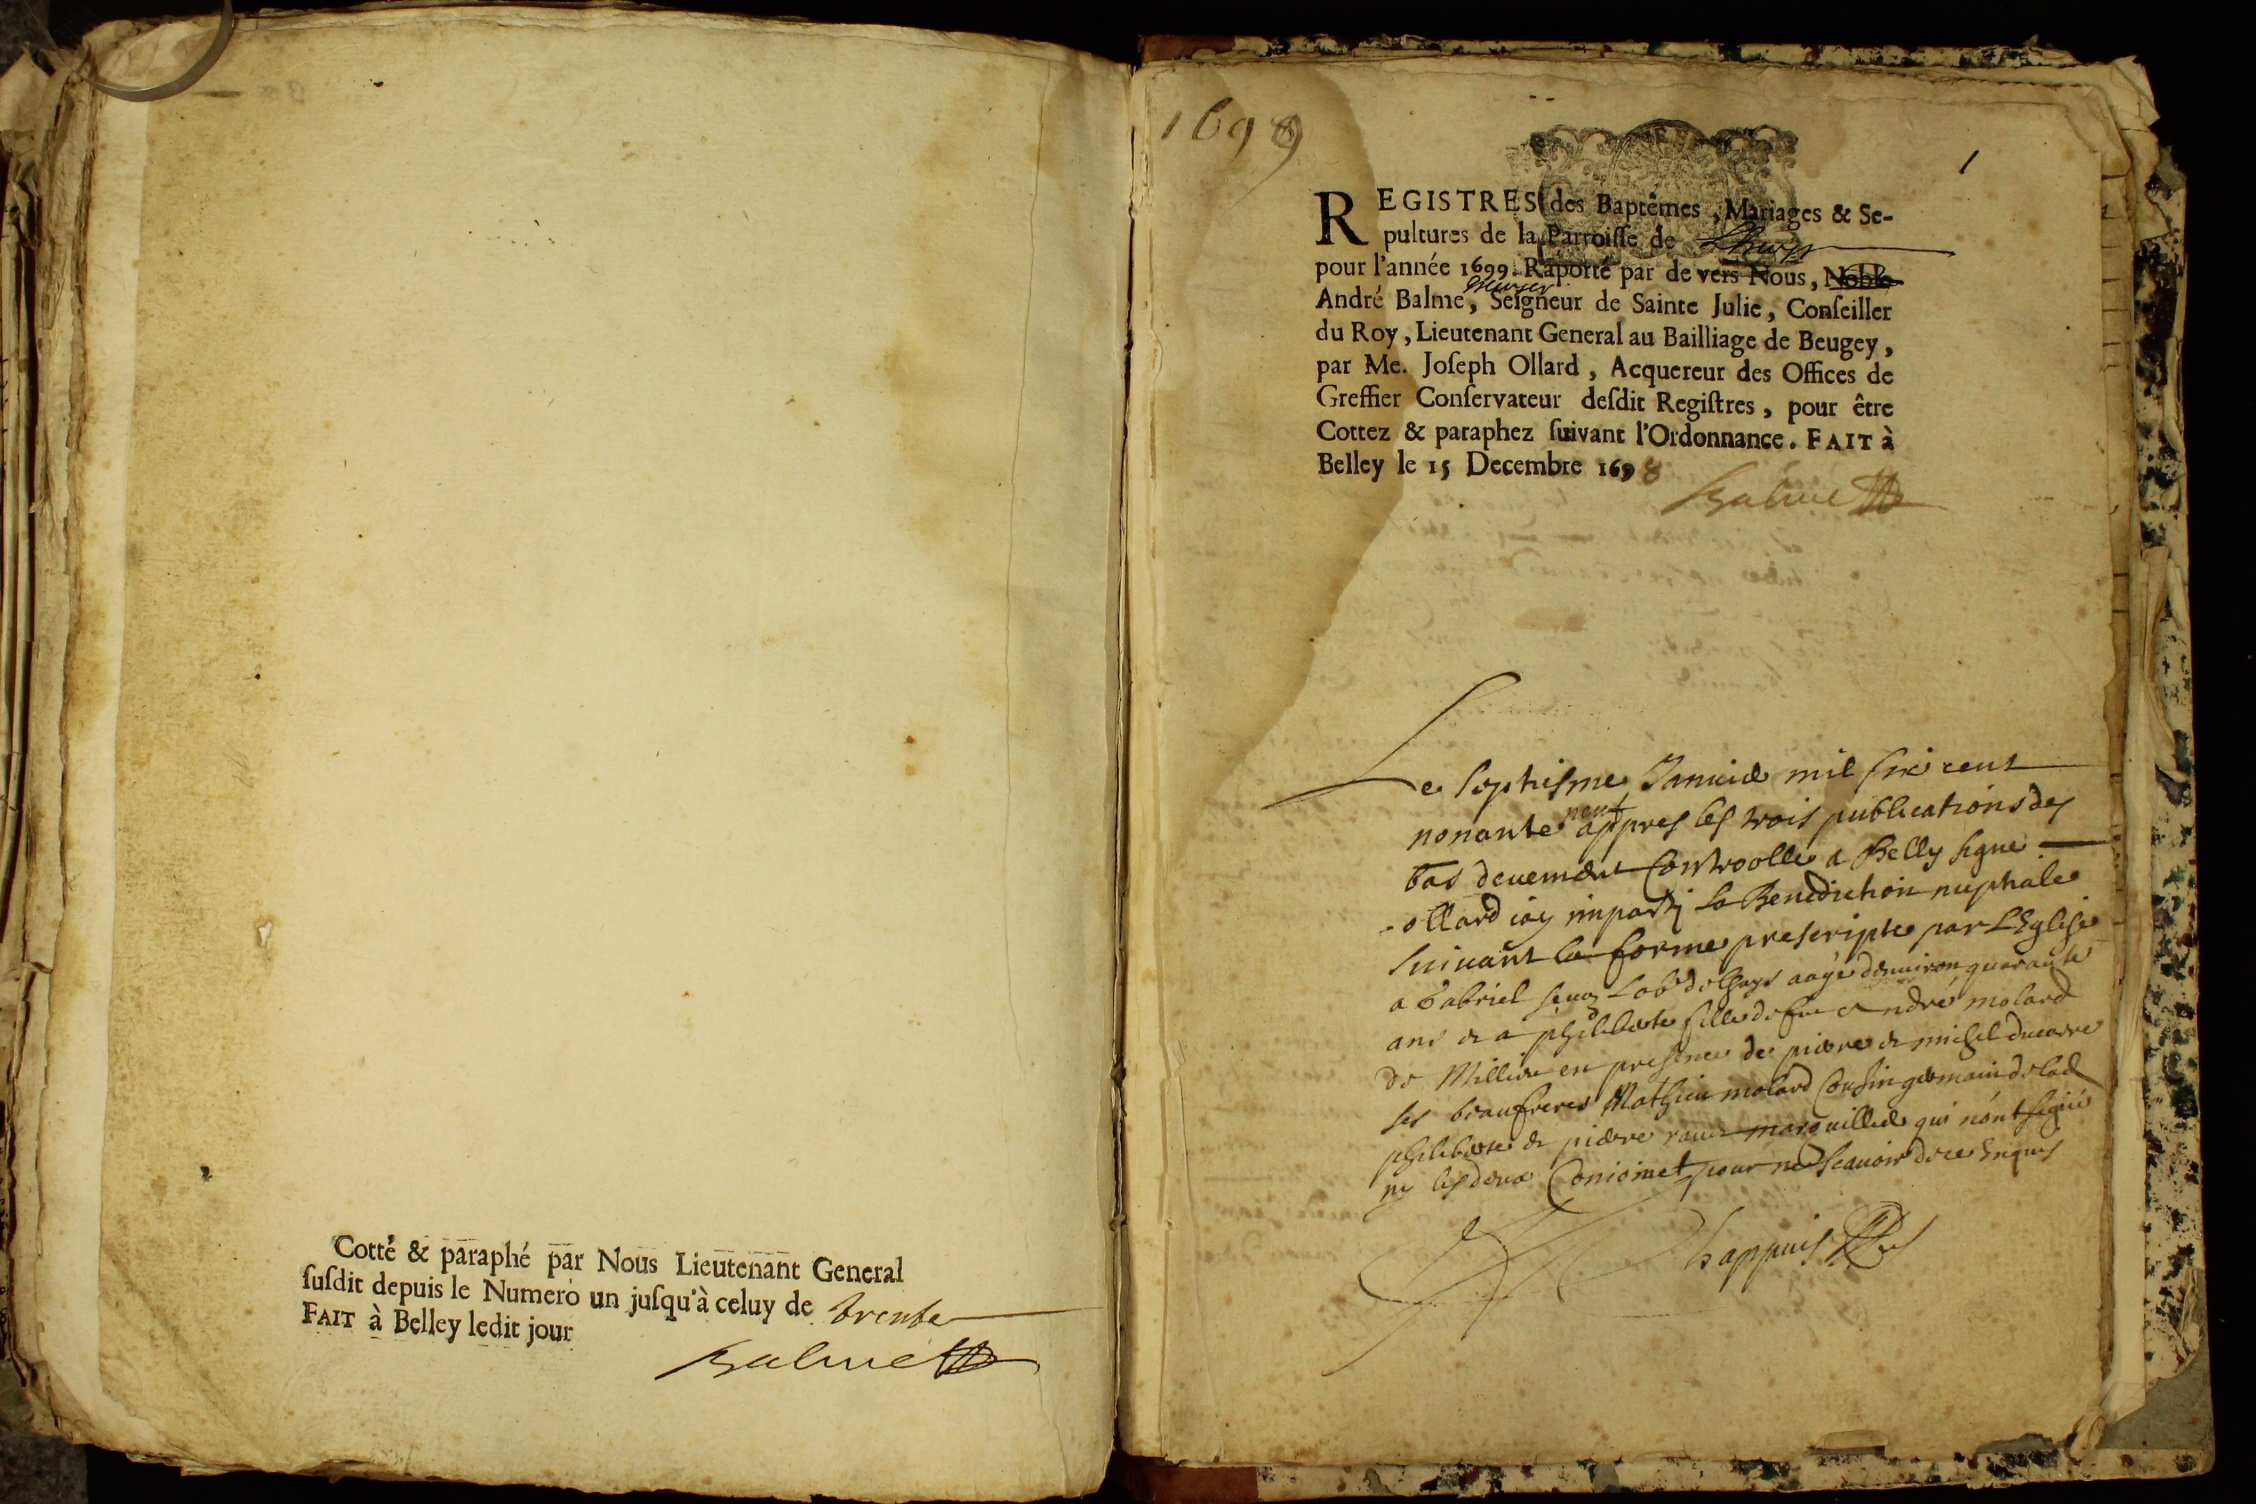 Cotté & paraphé par Nous Lieutenant General
susdit depuis le Numero un jusqu'à celuy de trente
FAIT à Belley ledit jour
Balme
1699
1
REGISTRES des Baptêmes, Mariages & Se-
pultures de la Parroisse de Lhuys
pour l'année 1699. Raporté par de vers Nous, Noble
Messire
André Balme, Seigneur de Sainte Julie, Conseiller
du Roy, Lieutenant General au Bailliage de Beugey,
par Me. Joseph Ollard, Acquereur des Offices de
Greffier Conservateur desdit Registres, pour être
Cottez & paraphez suivant l'Ordonnance. FAIT à
Belley le 15 Decembre 1698
Balme
Le septiesme Janvier mil six cent
nonante neuf appres les trois publications des
bas deuement Controolle a Belly signe
ollard iay imparty la Benediction nuptiale
suivant la forme prescripte par L'Eglise
a Gabriel Labr de Lhuys aagé denviron quarante
ans & a philiberte fille de feu André molard
de Millieu en presence de pierre & michel ducarre
ses beaufreres Mathieu molard Cousin germain de lad
philiberte & pierre marguillier qui n'ont signé
ny les deux Conioinct pour ne scauoir de ce Enquis
Chappuis